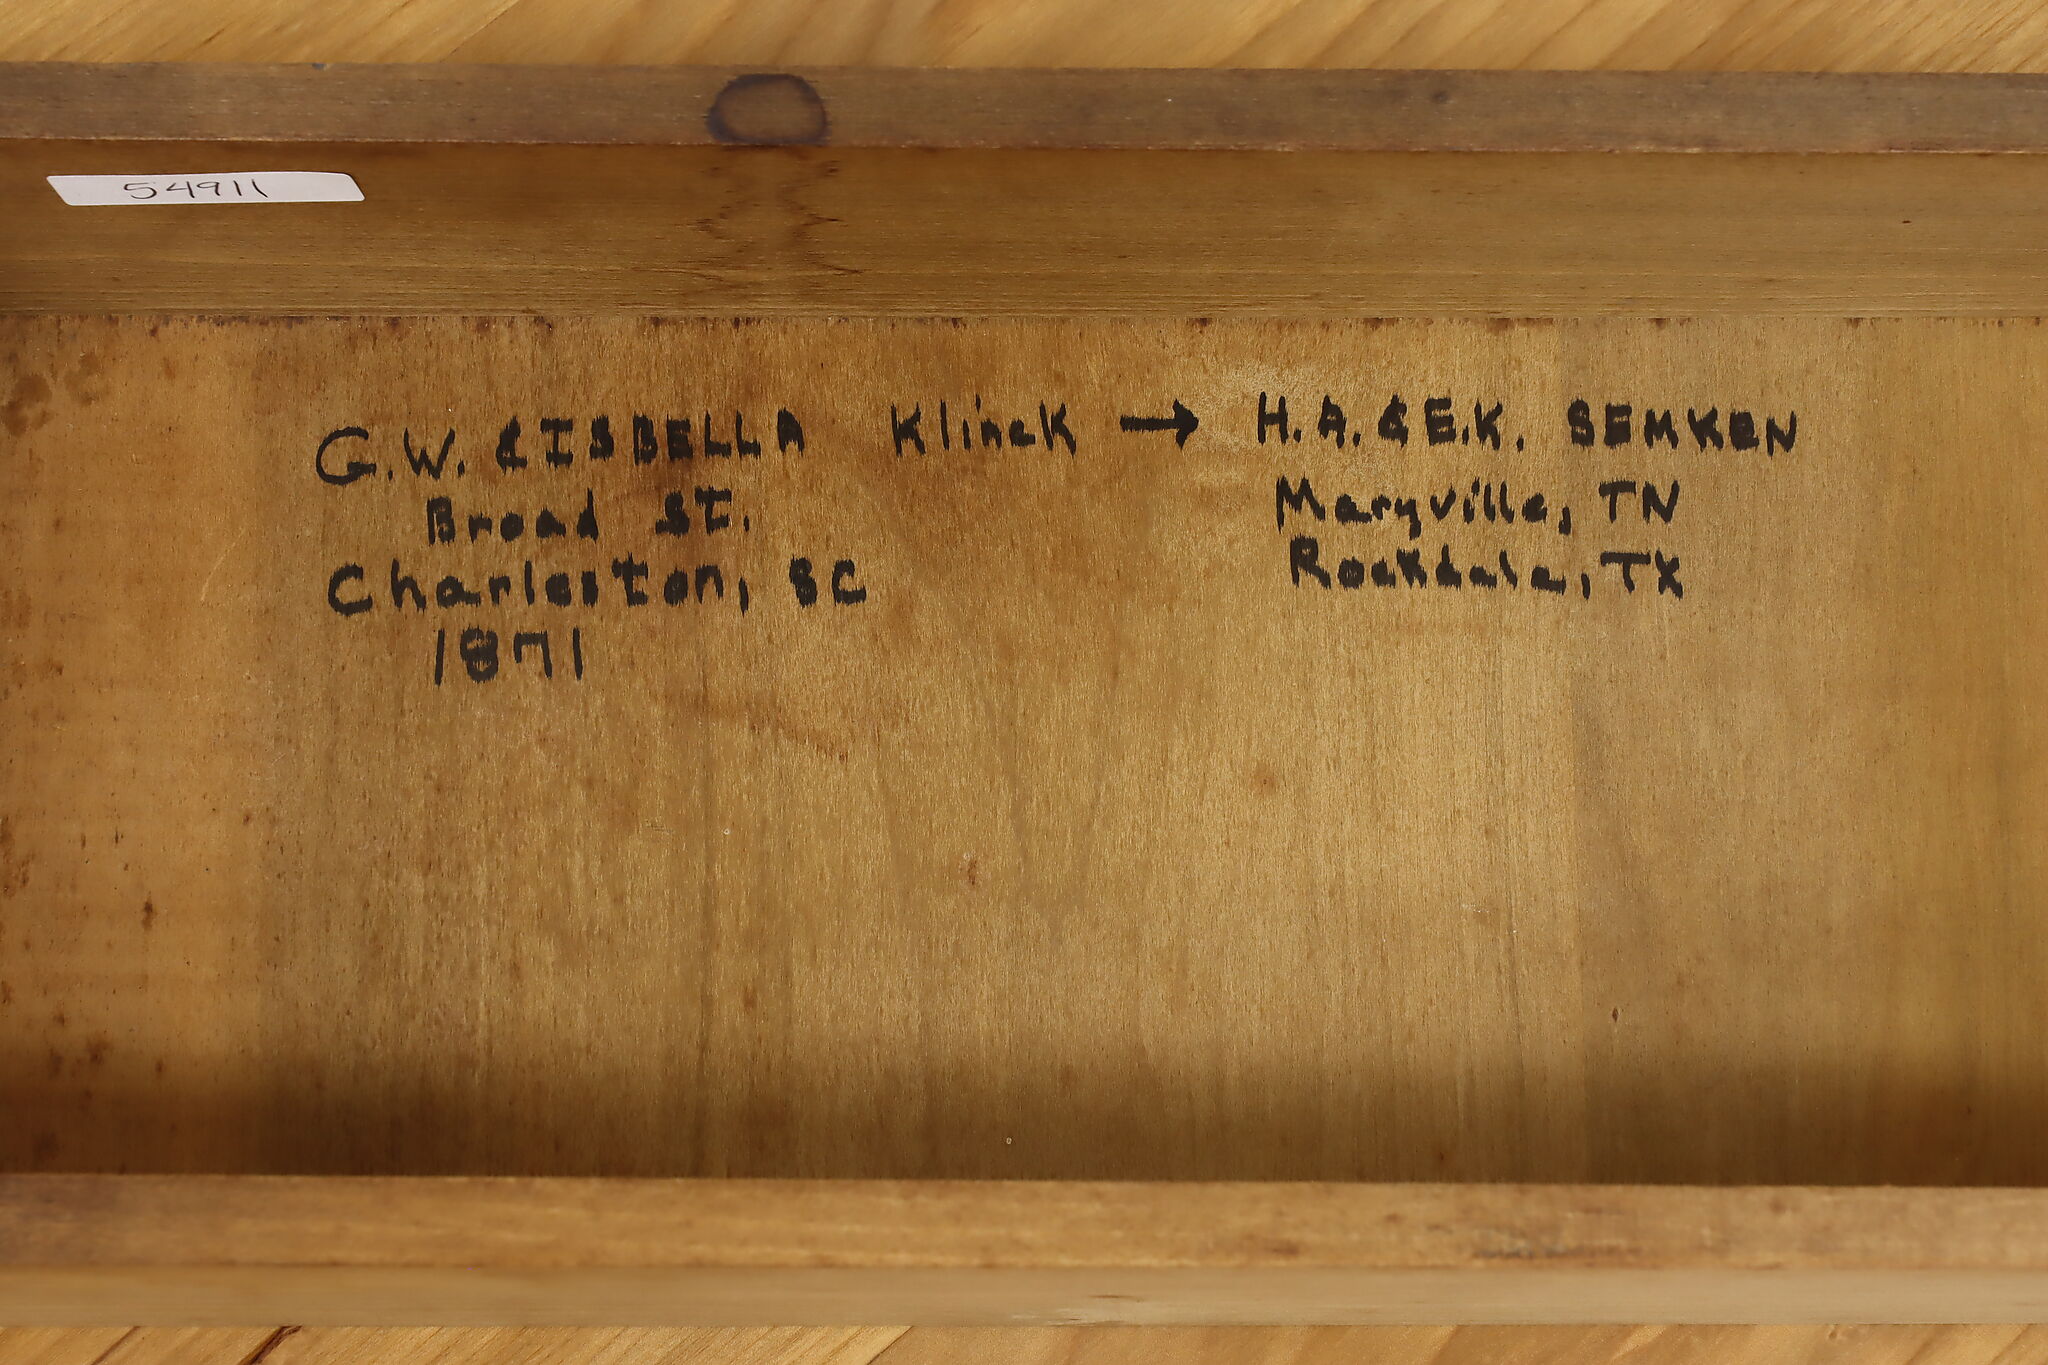 54911
G.W. & ISBELLA Klinck → H.A. & E.K. SEMKEN
Broad St.
Maryville, TN
Charleston, SC
Rockdale, TX
1871